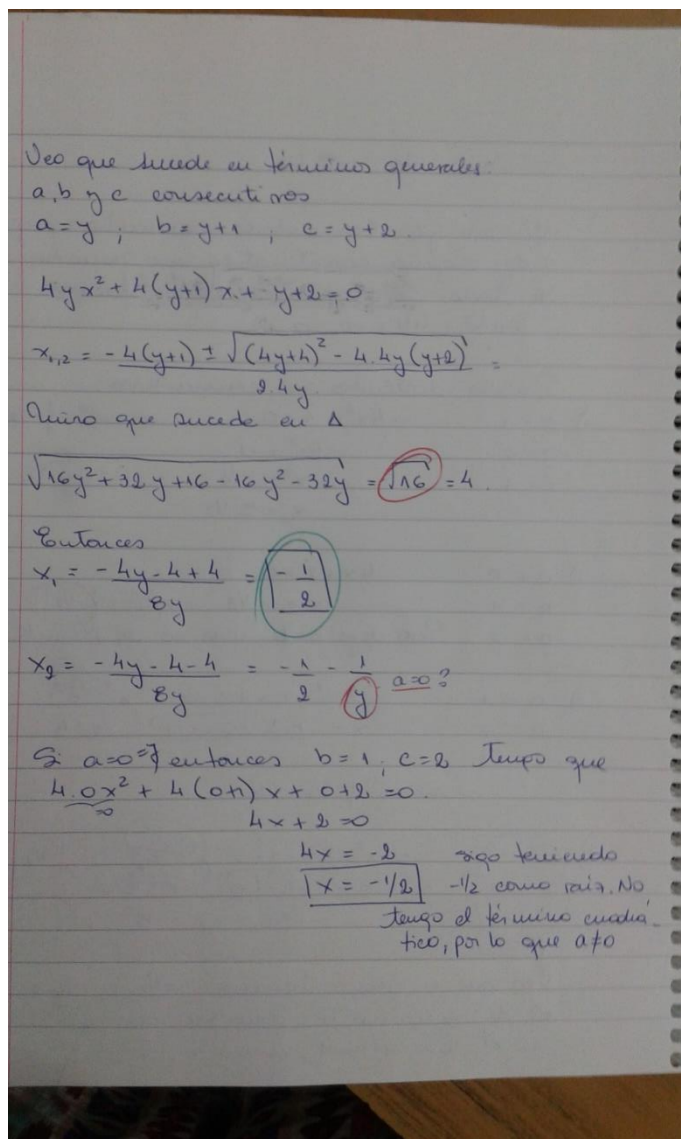 Veo que sucede en términos generales:
a, b y c consecutivos
a = y ; b = y+1 , c = y+2.
4yx² + 4(y+1)x + y+2 = 0
x₁,₂ = (-4(y+1) ± √((4y+4)² - 4.4y(y+2))) / 2.4y =
Miro que sucede en Δ
√(16y² + 32y + 16 - 16y² - 32y) = √16 = 4.
Entonces
x₁ = (-4y - 4 + 4) / 8y = -1/2
x₂ = (-4y - 4 - 4) / 8y = -1/2 - 1/y a=0?
Si a=0=y entonces b = 1 ; c = 2 Tengo que
4.0x² + 4(0+1)x + 0+2 = 0.
=0
4x + 2 = 0
4x = -2 sigo teniendo
x = -1/2 -1/2 como raíz. No
tengo el término cuadrá-
tico, por lo que a≠0